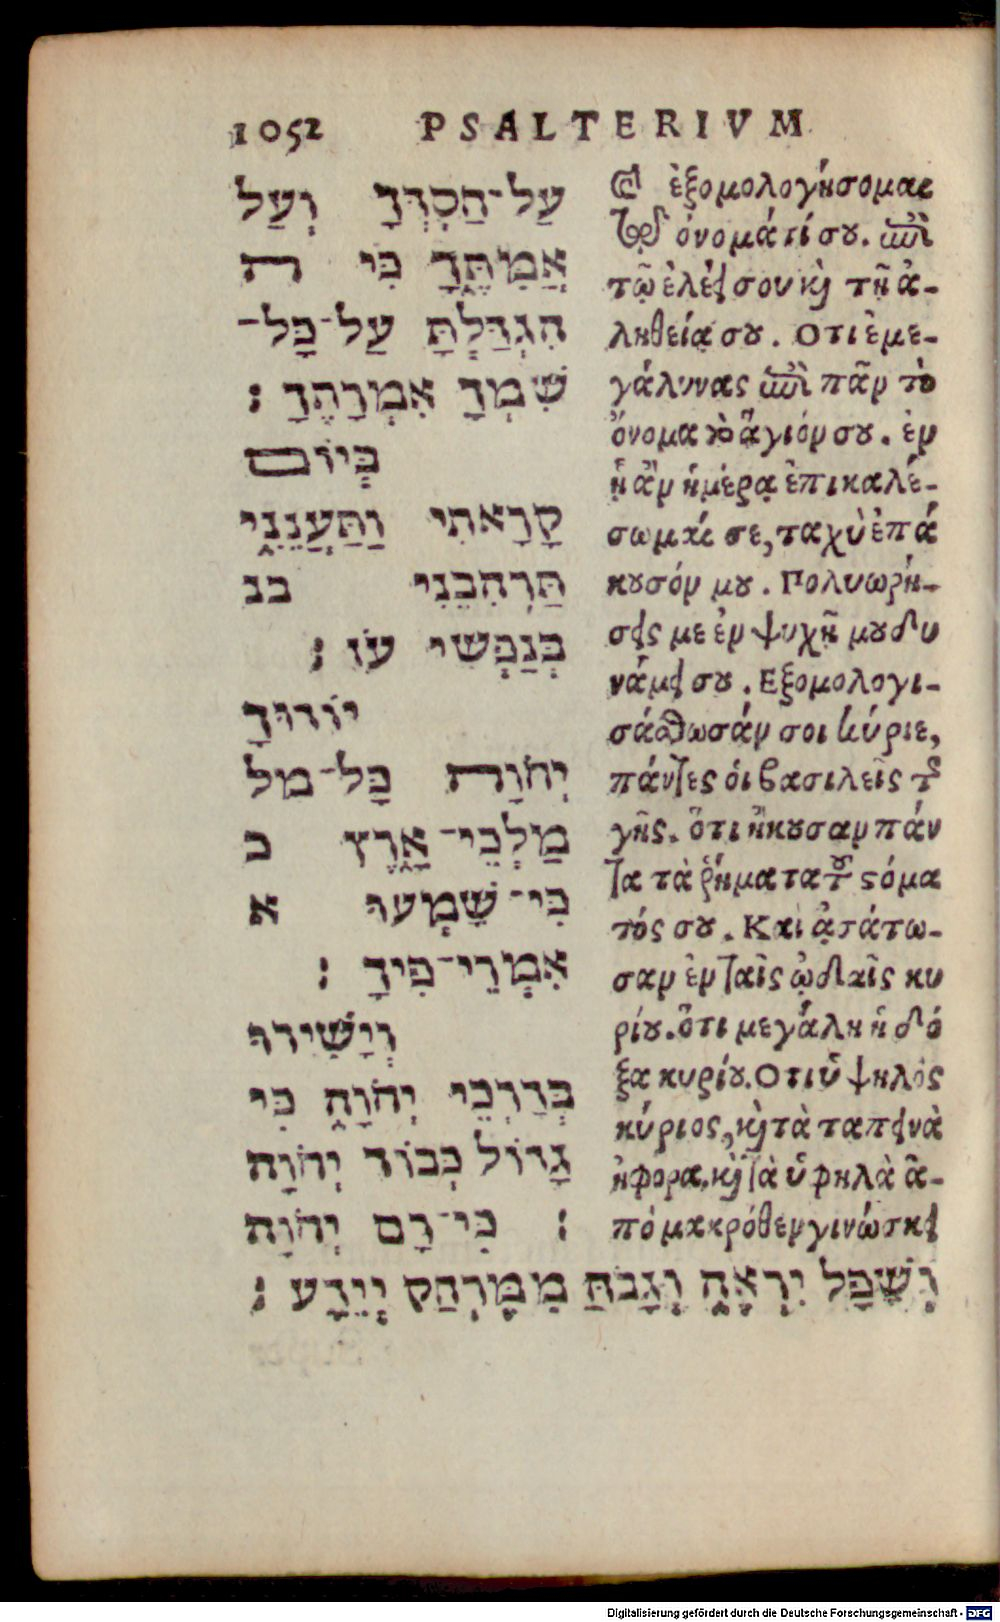 1052 PSALTERIVM
עַל־חַסְדְּךָ וְעַל
אֲמִתֶּךָ כִּי ה
הִגְדַּלְתָּ עַל־כָּל־
שִׁמְךָ אִמְרָתֶךָ :
בְּיוֹם
קָרָאתִי וַתַּעֲנֵנִי
תַּרְהִבֵנִי בנ
בְּנַפְשִׁי עֹז :
יוֹדוּךָ
יְהֹוָה כָּל־מל
מַלְכֵי־אָרֶץ כ
כִּי־שָׁמְעוּ א
אִמְרֵי־פִיךָ :
וְיָשִׁירוּ
בְּדַרְכֵי יְהֹוָה כִּי
גָדוֹל כְּבוֹד יְהֹוָה
: כִּי־רָם יְהֹוָה
וְשָׁפָל יִרְאֶה וְגָבֹהַּ מִמֶּרְחָק יְיֵדָע :
Καὶ ἐξομολογήσομαι
τῷ ὀνοματί σου. ἐπὶ
τῷ ἐλέει σου καὶ τῇ ἀ-
ληθείᾳ σου. Οτι ἐμε-
γάλυνας ἐπὶ πᾶν τὸ
ὄνομα τὸ ἅγιόν σου. ἐν
ᾗ ἂν ἡμέρᾳ ἐπικαλέ-
σωμαί σε, ταχὺ ἐπά
κουσόν μου. Πολυωρή-
σεις με ἐν ψυχῇ μου δυ
νάμει σου. Εξομολογι-
σάσθωσάν σοι κύριε,
πάντες οἱ βασιλεῖς τῆς
γῆς. ὅτι ἤκουσαν πάν
τα τὰ ῥήματα τοῦ στόμα
τός σου. Καὶ ᾀσάτω-
σαν ἐν ταῖς ᾠδαῖς κυ
ρίου. ὅτι μεγάλη ἡ δό
ξα κυρίου. Οτι ὑψηλὸς
κύριος, καὶ τὰ ταπεινὰ
ἐφορᾷ, καὶ τὰ ὑψηλὰ ἀ-
πὸ μακρόθεν γινώσκει
Digitalisierung gefördert durch die Deutsche Forschungsgemeinschaft - DFG